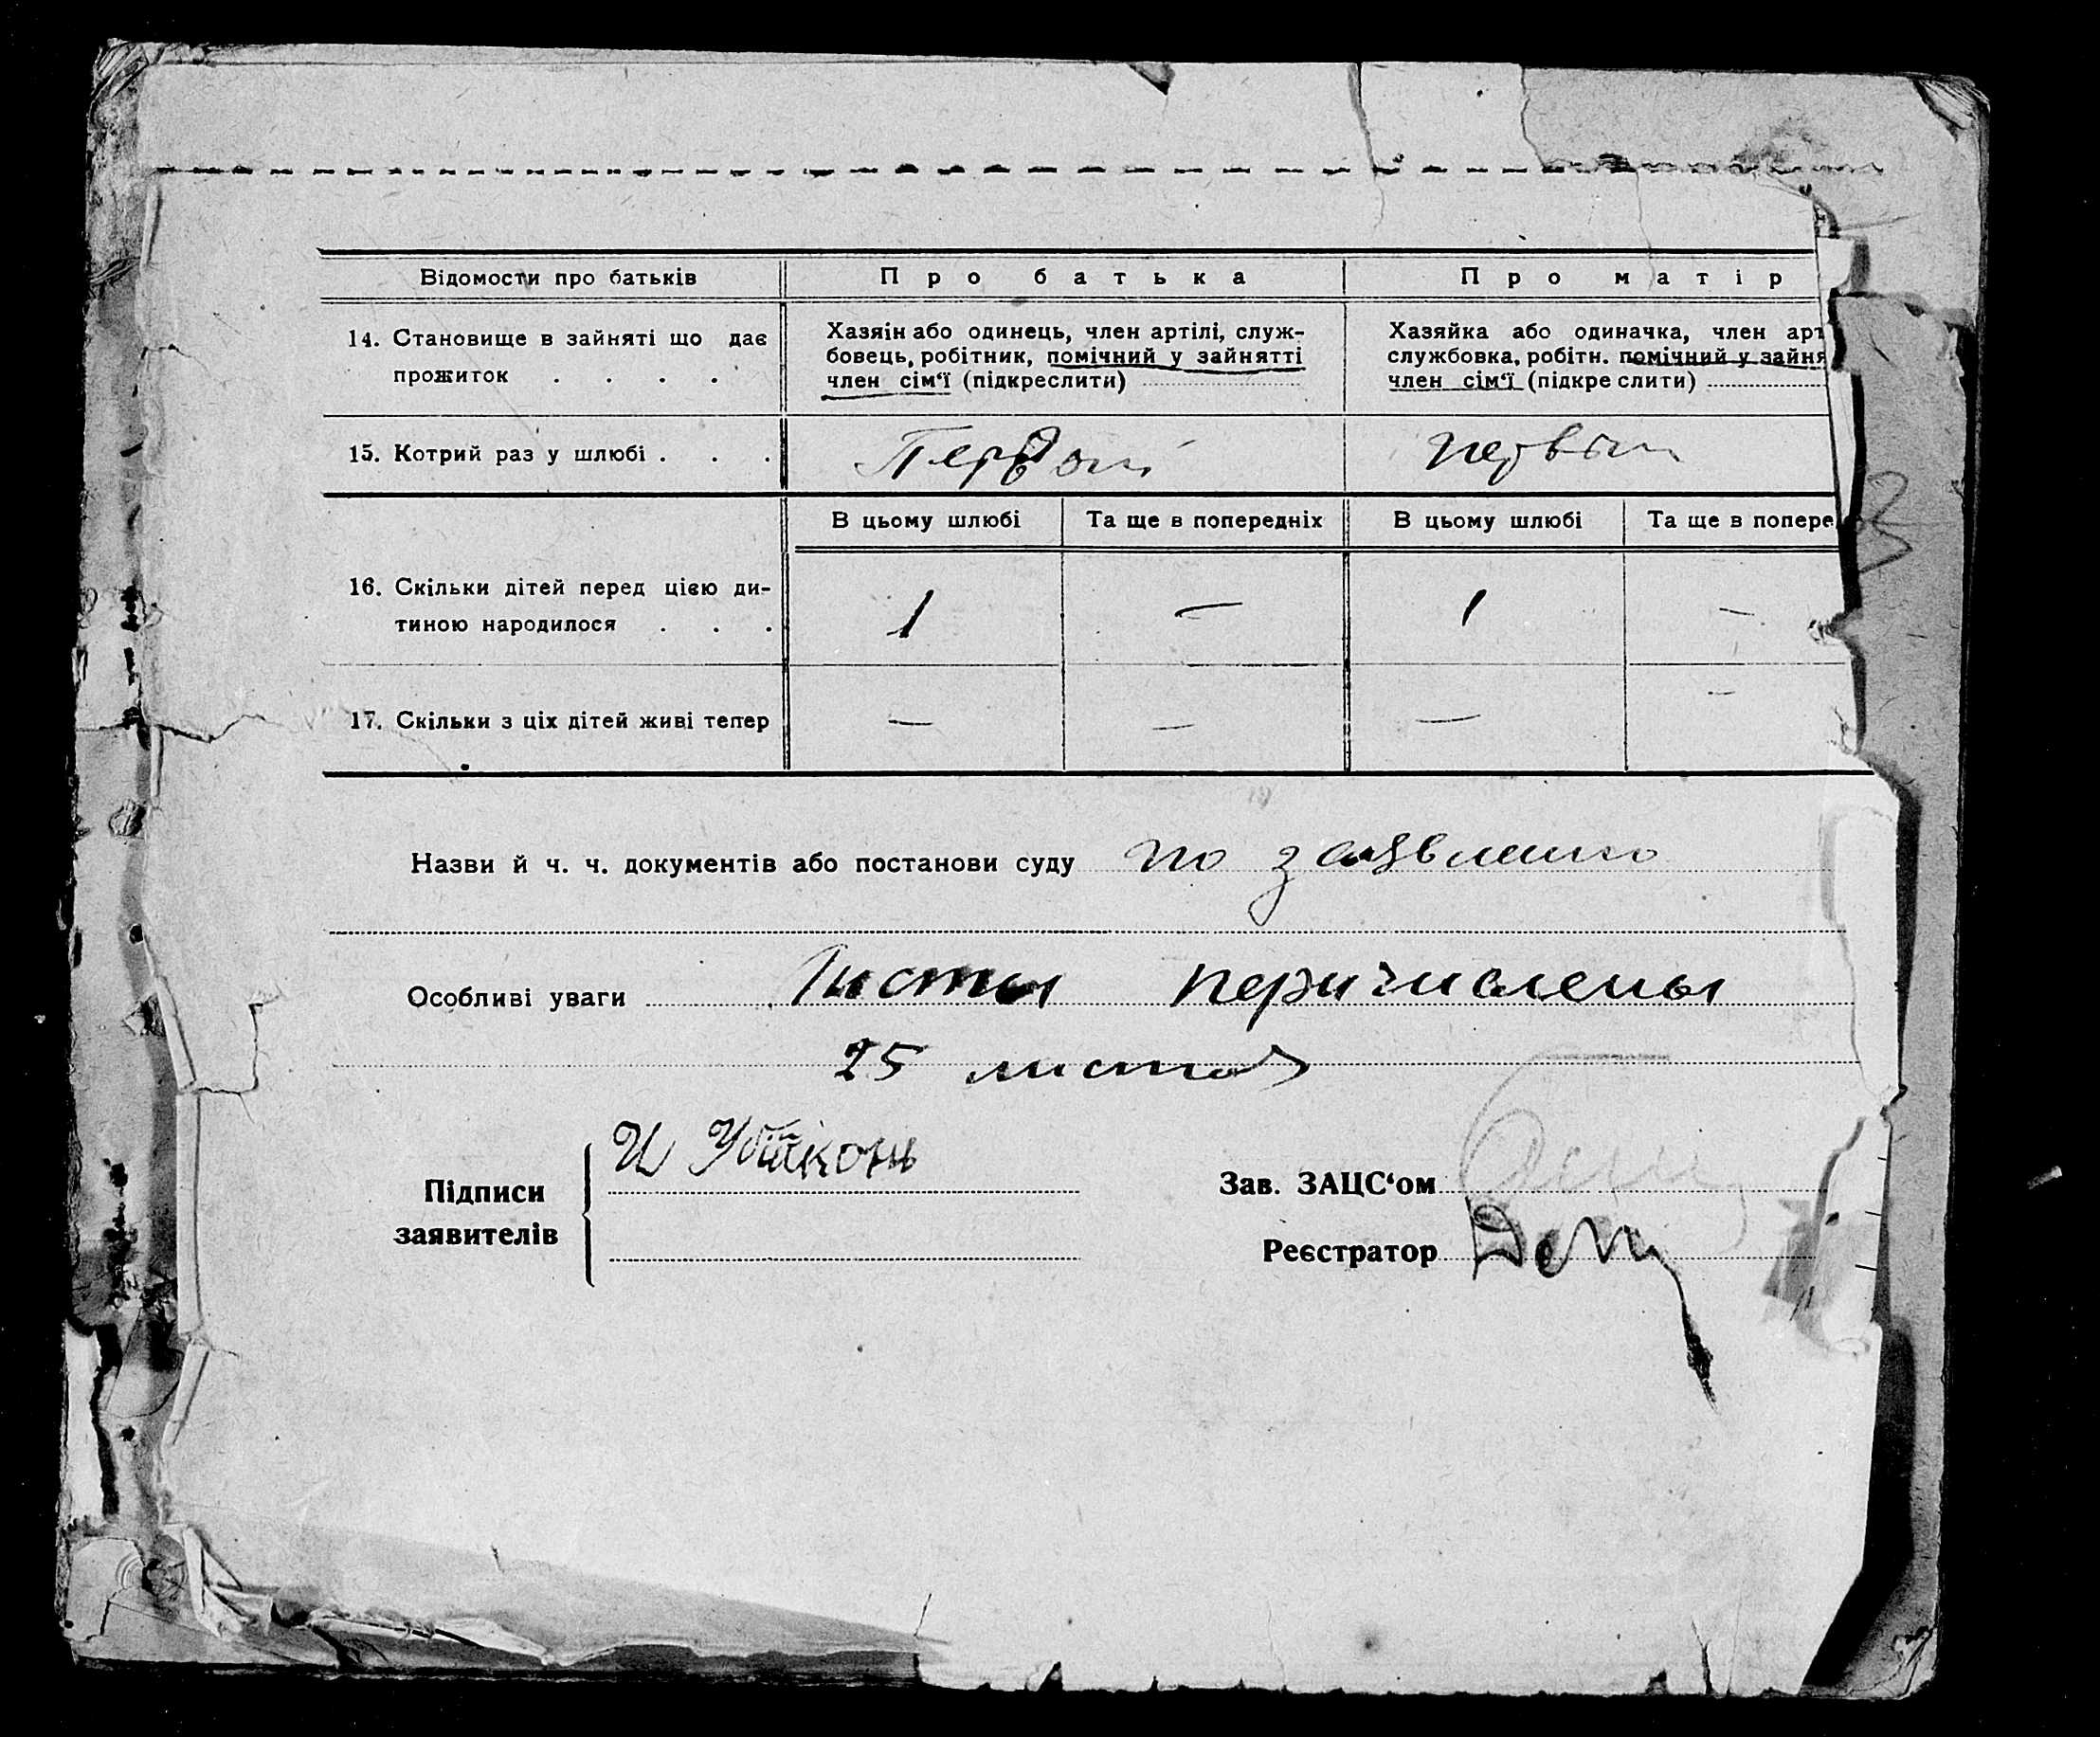 Відомости про батьків Про батька Про матір
14. Становище в зайняті що дає прожиток . . . .
Хазяін або одинець, член артілі, служ-
бовець, робітник, помічний у зайнятті
член сім‘ї (підкреслити)
Хазяйка або одиначка, член арт
службовка, робітн. помічний у зайня
член сім‘ї (підкреслити)
15. Котрий раз у шлюбі . . . Первой первий
В цьому шлюбі Та ще в попередніх В цьому шлюбі Та ще в попере
16. Скільки дітей перед цією ди-
тиною народилося . . . 1 — 1 —
17. Скільки з ціх дітей живі тепер — — — —
Назви й ч. ч. документів або постанови суду по заявлению
Особливі уваги Листы перичислены
25 листов
Підписи
заявителів
И Убийконь
Зав. ЗАЦС‘ом
Реєстратор